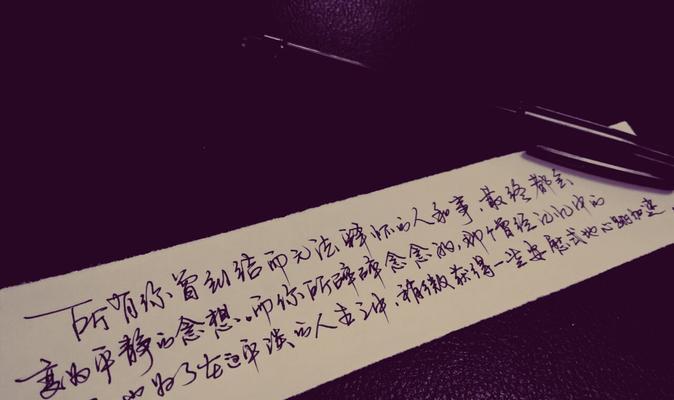 所有你曾纠结而无法释怀的人和事，最终都会
变为平静的念想。而你所碎碎念念的，那个曾经记忆中的
也为了在这平淡的人生之中，稍微获得一些安慰或者心跳加速